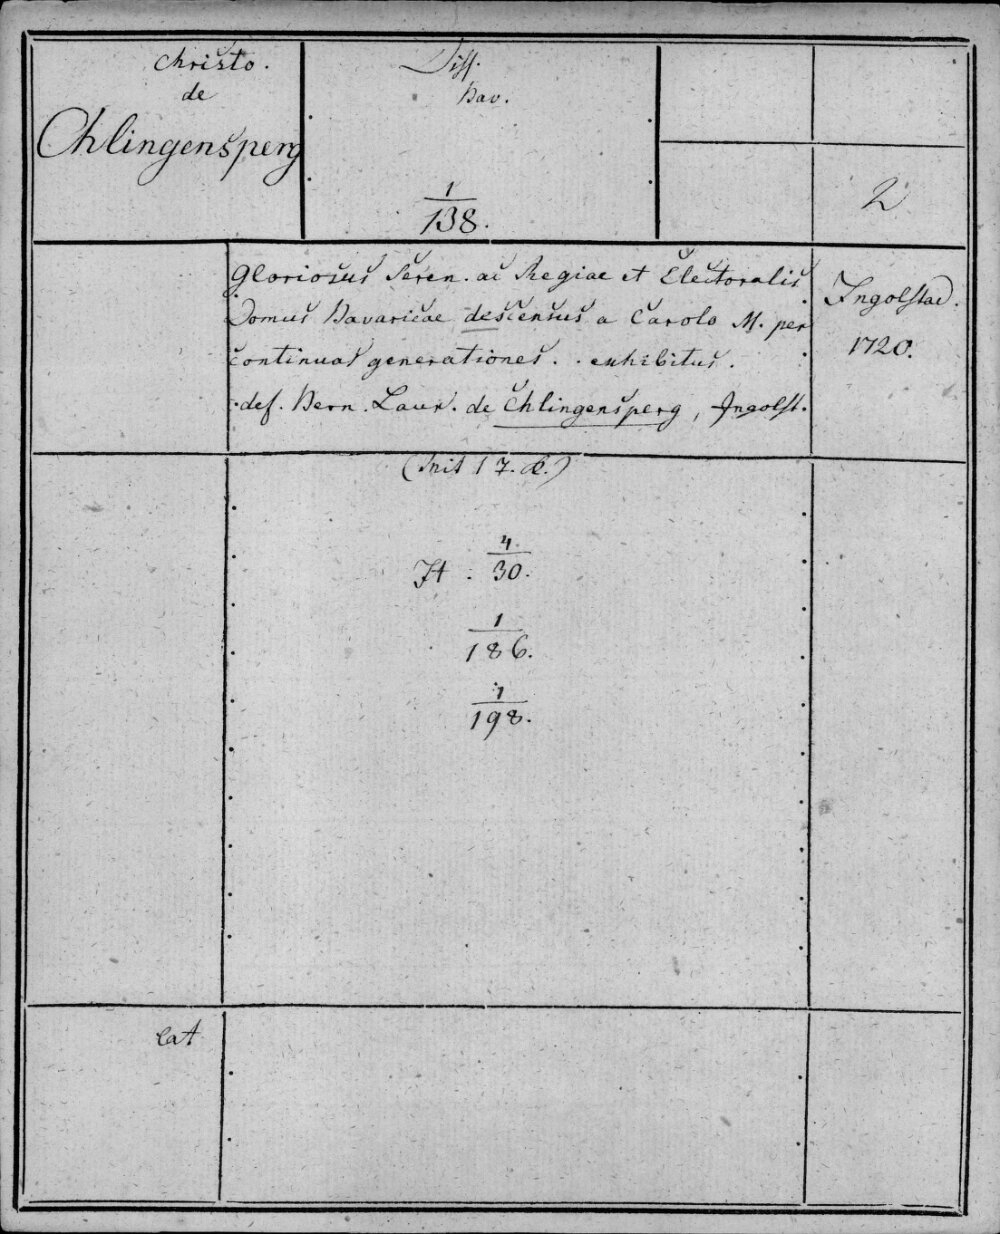 Christo.
de
Chlingensperg
Diss.
Bav.
1
138.
2
Gloriosus Seren. ac Regiae et Electoralis
Domus Bavaricae descensus a Carolo M. per
continuas generationes . . exhibitus.
def. Bern. Laur. de Chlingensperg, Ingolst.
Ingolstad.
1720.
(mit 17.
It. 4
30.
1
186.
1
198.
lat